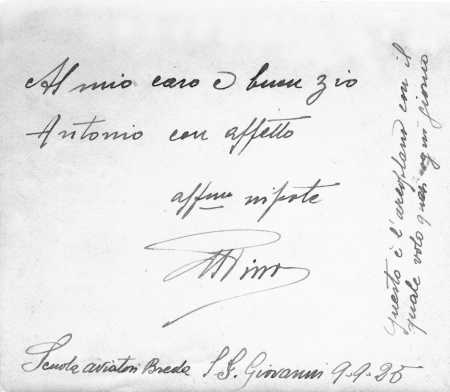 Al mio caro e buon zio
Antonio con affetto
affmo nipote
Nino
Scuola aviatori Breda S. S. Giovanni 9-9-25
Questo è l'areoplano con il
quale volo quasi ogni giorno